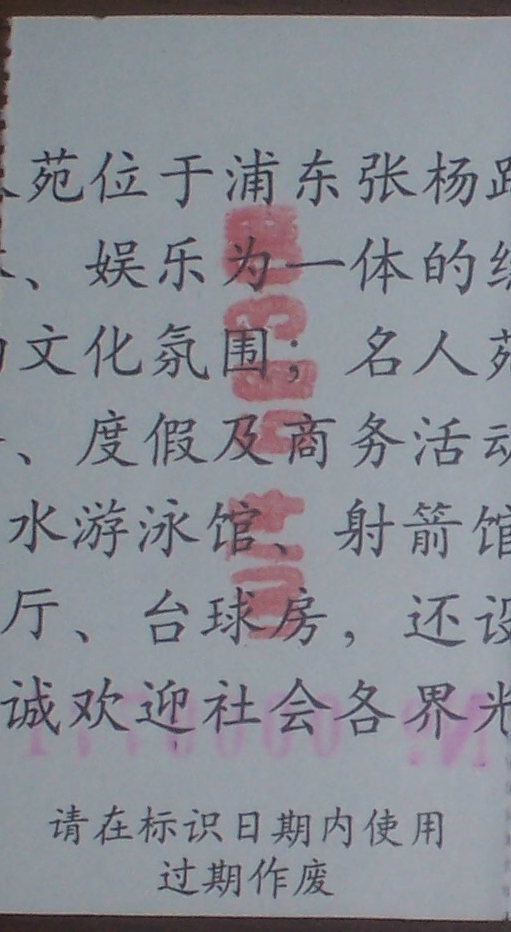 苑位于浦东张杨路
、娱乐为一体的综
文化氛围；名人苑
、度假及商务活动
水游泳馆、射箭馆
厅、台球房，还设
诚欢迎社会各界光
请在标识日期内使用
过期作废